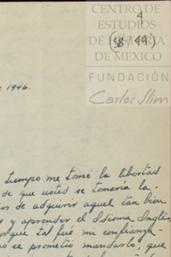 4
CENTRO DE
ESTUDIOS
(58 49)
DE HISTORIA
DE MEXICO
FUNDACIÓN
Carlos Slim
1946.
tiempo me tomé la libertad
de que ustedes se tomaría la
de adquirir aquel tan bien
y aprender el Idioma Inglés
porque tal fué mi confianza
se prometió mandarlo, que